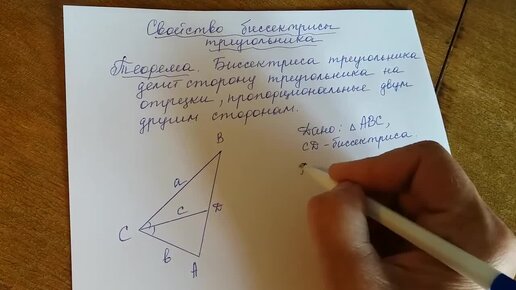 Свойство биссектрисы
треугольника
Теорема. Биссектриса треугольника
делит сторону треугольника на
отрезки, пропорциональные двум
другим сторонам.
Дано: △ABC,
CD - биссектриса.
B
a
c
D
C
в
A